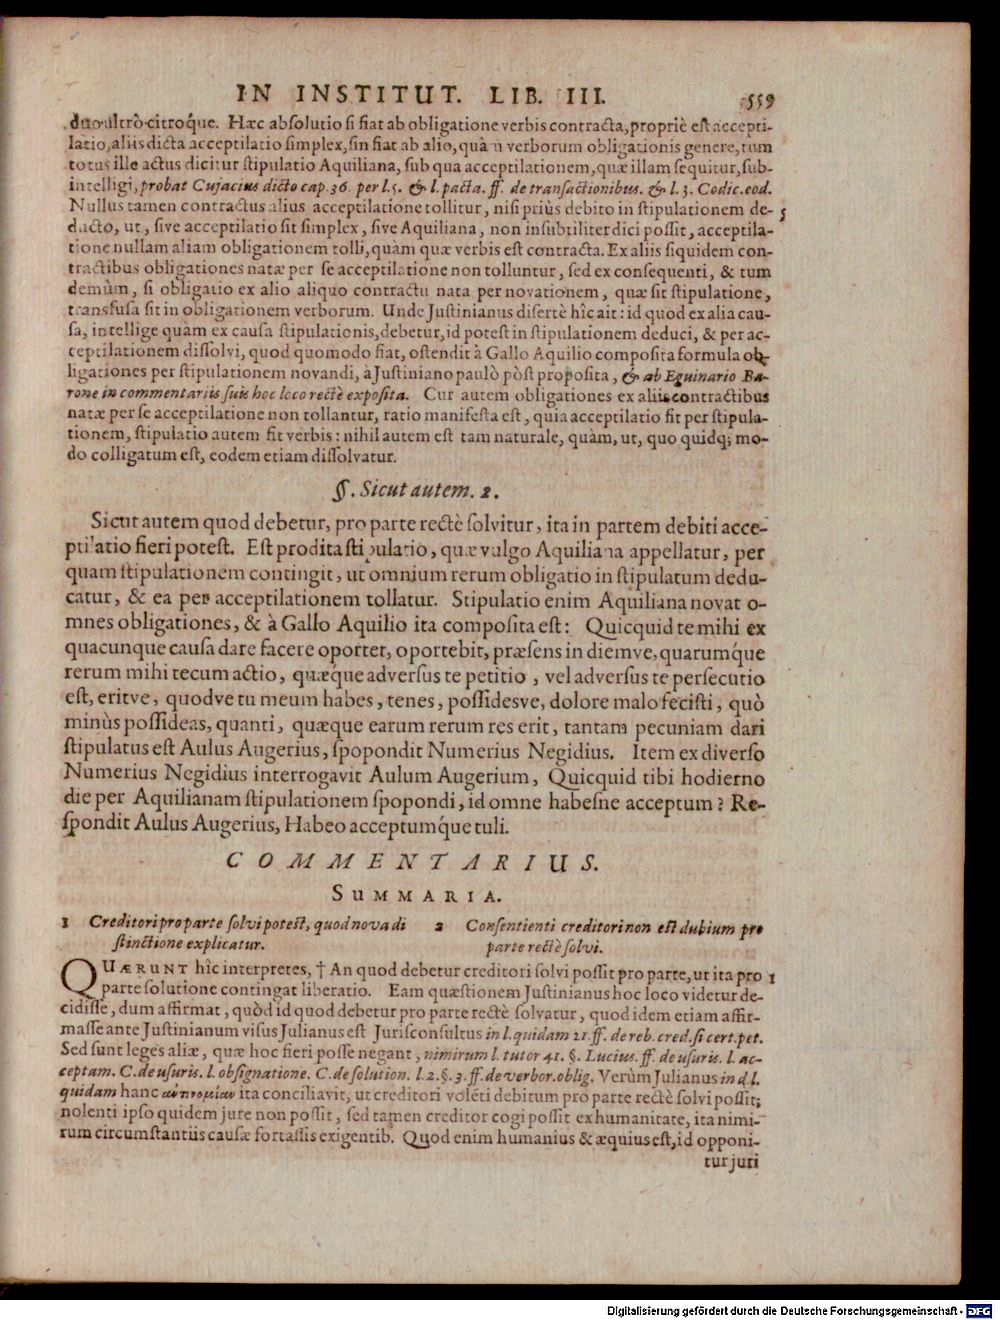 IN INSTITUT. LIB. III. 559
duo ultrò citroq́ue. Hæc absolutio si fiat ab obligatione verbis contracta, propriè est accepti-
latio, aliis dicta acceptilatio simplex, sin fiat ab alio, quàm verborum obligationis genere, tum
totus ille actus dicitur stipulatio Aquiliana, sub qua acceptilationem, quæ illam sequitur, sub-
intelligi, probat Cujacius dicto cap. 36. per l. 5. & l. pacta. ff. de transactionibus. & l. 3. Codic. eod.
Nullus tamen contractus alius acceptilatione tollitur, nisi priùs debito in stipulationem de- 5
ducto, ut, sive acceptilatio sit simplex, sive Aquiliana, non insubtiliter dici possit, acceptila-
tione nullam aliam obligationem tolli, quàm quæ verbis est contracta. Ex aliis siquidem con-
tractibus obligationes natæ per se acceptilatione non tolluntur, sed ex consequenti, & tum
demùm, si obligatio ex alio aliquo contractu nata per novationem, quæ fit stipulatione,
transfusa sit in obligationem verborum. Unde Justinianus disertè hîc ait: id quod ex alia cau-
sa, intellige quàm ex causa stipulationis, debetur, id potest in stipulationem deduci, & per ac-
ceptilationem dissolvi, quod quomodo fiat, ostendit à Gallo Aquilio composita formula ob-
ligationes per stipulationem novandi, à Justiniano paulò pòst proposita, & ab Eguinario Ba-
rone in commentariis suis hoc loco rectè exposita. Cur autem obligationes ex aliis contractibus
natæ per se acceptilatione non tollantur, ratio manifesta est, quia acceptilatio fit per stipula-
tionem, stipulatio autem fit verbis: nihil autem est tam naturale, quàm, ut, quo quidq; mo-
do colligatum est, eodem etiam dissolvatur.
§. Sicut autem. 2.
Sicut autem quod debetur, pro parte rectè solvitur, ita in partem debiti acce-
ptilatio fieri potest. Est prodita stipulatio, quæ vulgo Aquiliana appellatur, per
quam stipulationem contingit, ut omnium rerum obligatio in stipulatum dedu-
catur, & ea per acceptilationem tollatur. Stipulatio enim Aquiliana novat o-
mnes obligationes, & à Gallo Aquilio ita composita est: Quicquid te mihi ex
quacunque causa dare facere oportet, oportebit, præsens in diemve, quarumq́ue
rerum mihi tecum actio, quæq́ue adversus te petitio, vel adversus te persecutio
est, eritve, quodve tu meum habes, tenes, possidesve, dolore malo fecisti, quò
minùs possideas, quanti, quæque earum rerum res erit, tantam pecuniam dari
stipulatus est Aulus Augerius, spopondit Numerius Negidius. Item ex diverso
Numerius Negidius interrogavit Aulum Augerium, Quicquid tibi hodierno
die per Aquilianam stipulationem spopondi, id omne habesne acceptum? Re-
spondit Aulus Augerius, Habeo acceptumq́ue tuli.
COMMENTARIUS.
SUMMARIA.
1 Creditori pro parte solvi potest, quod nova di
stinctione explicatur.
2 Consentienti creditori non est dubium pro
parte rectè solvi.
QUÆRUNT hîc interpretes, † An quod debetur creditori solvi possit pro parte, ut ita pro 1
parte solutione contingat liberatio. Eam quæstionem Justinianus hoc loco videtur de-
cidisse, dum affirmat, quòd id quod debetur pro parte rectè solvatur, quod idem etiam affir-
masse ante Justinianum visus Julianus est Jurisconsultus in l. quidam 21. ff. de reb. cred. si cert. pet.
Sed sunt leges aliæ, quæ hoc fieri posse negant, nimirum l. tutor 41. §. Lucius. ff. de usuris. l. ac-
ceptam. C. de usuris. l. obsignatione. C. de solution. l. 2. §. 3. ff. de verbor. oblig. Verùm Julianus in d. l.
quidam hanc ἀντινομίαν ita conciliavit, ut creditori volẽti debitum pro parte rectè solvi possit;
nolenti ipso quidem jure non possit, sed tamen creditor cogi possit ex humanitate, ita nimi-
rum circumstantiis causæ fortassis exigentib. Quod enim humanius & æquius est, id opponi-
tur juri
Digitalisierung gefördert durch die Deutsche Forschungsgemeinschaft - DFG